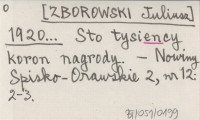 0
[ZBOROWSKI Juliusz]
1920... Sto tysiency
koron nagrody. — Nowiny
Spisko-Orawskie 2, nr 12:
2-3.